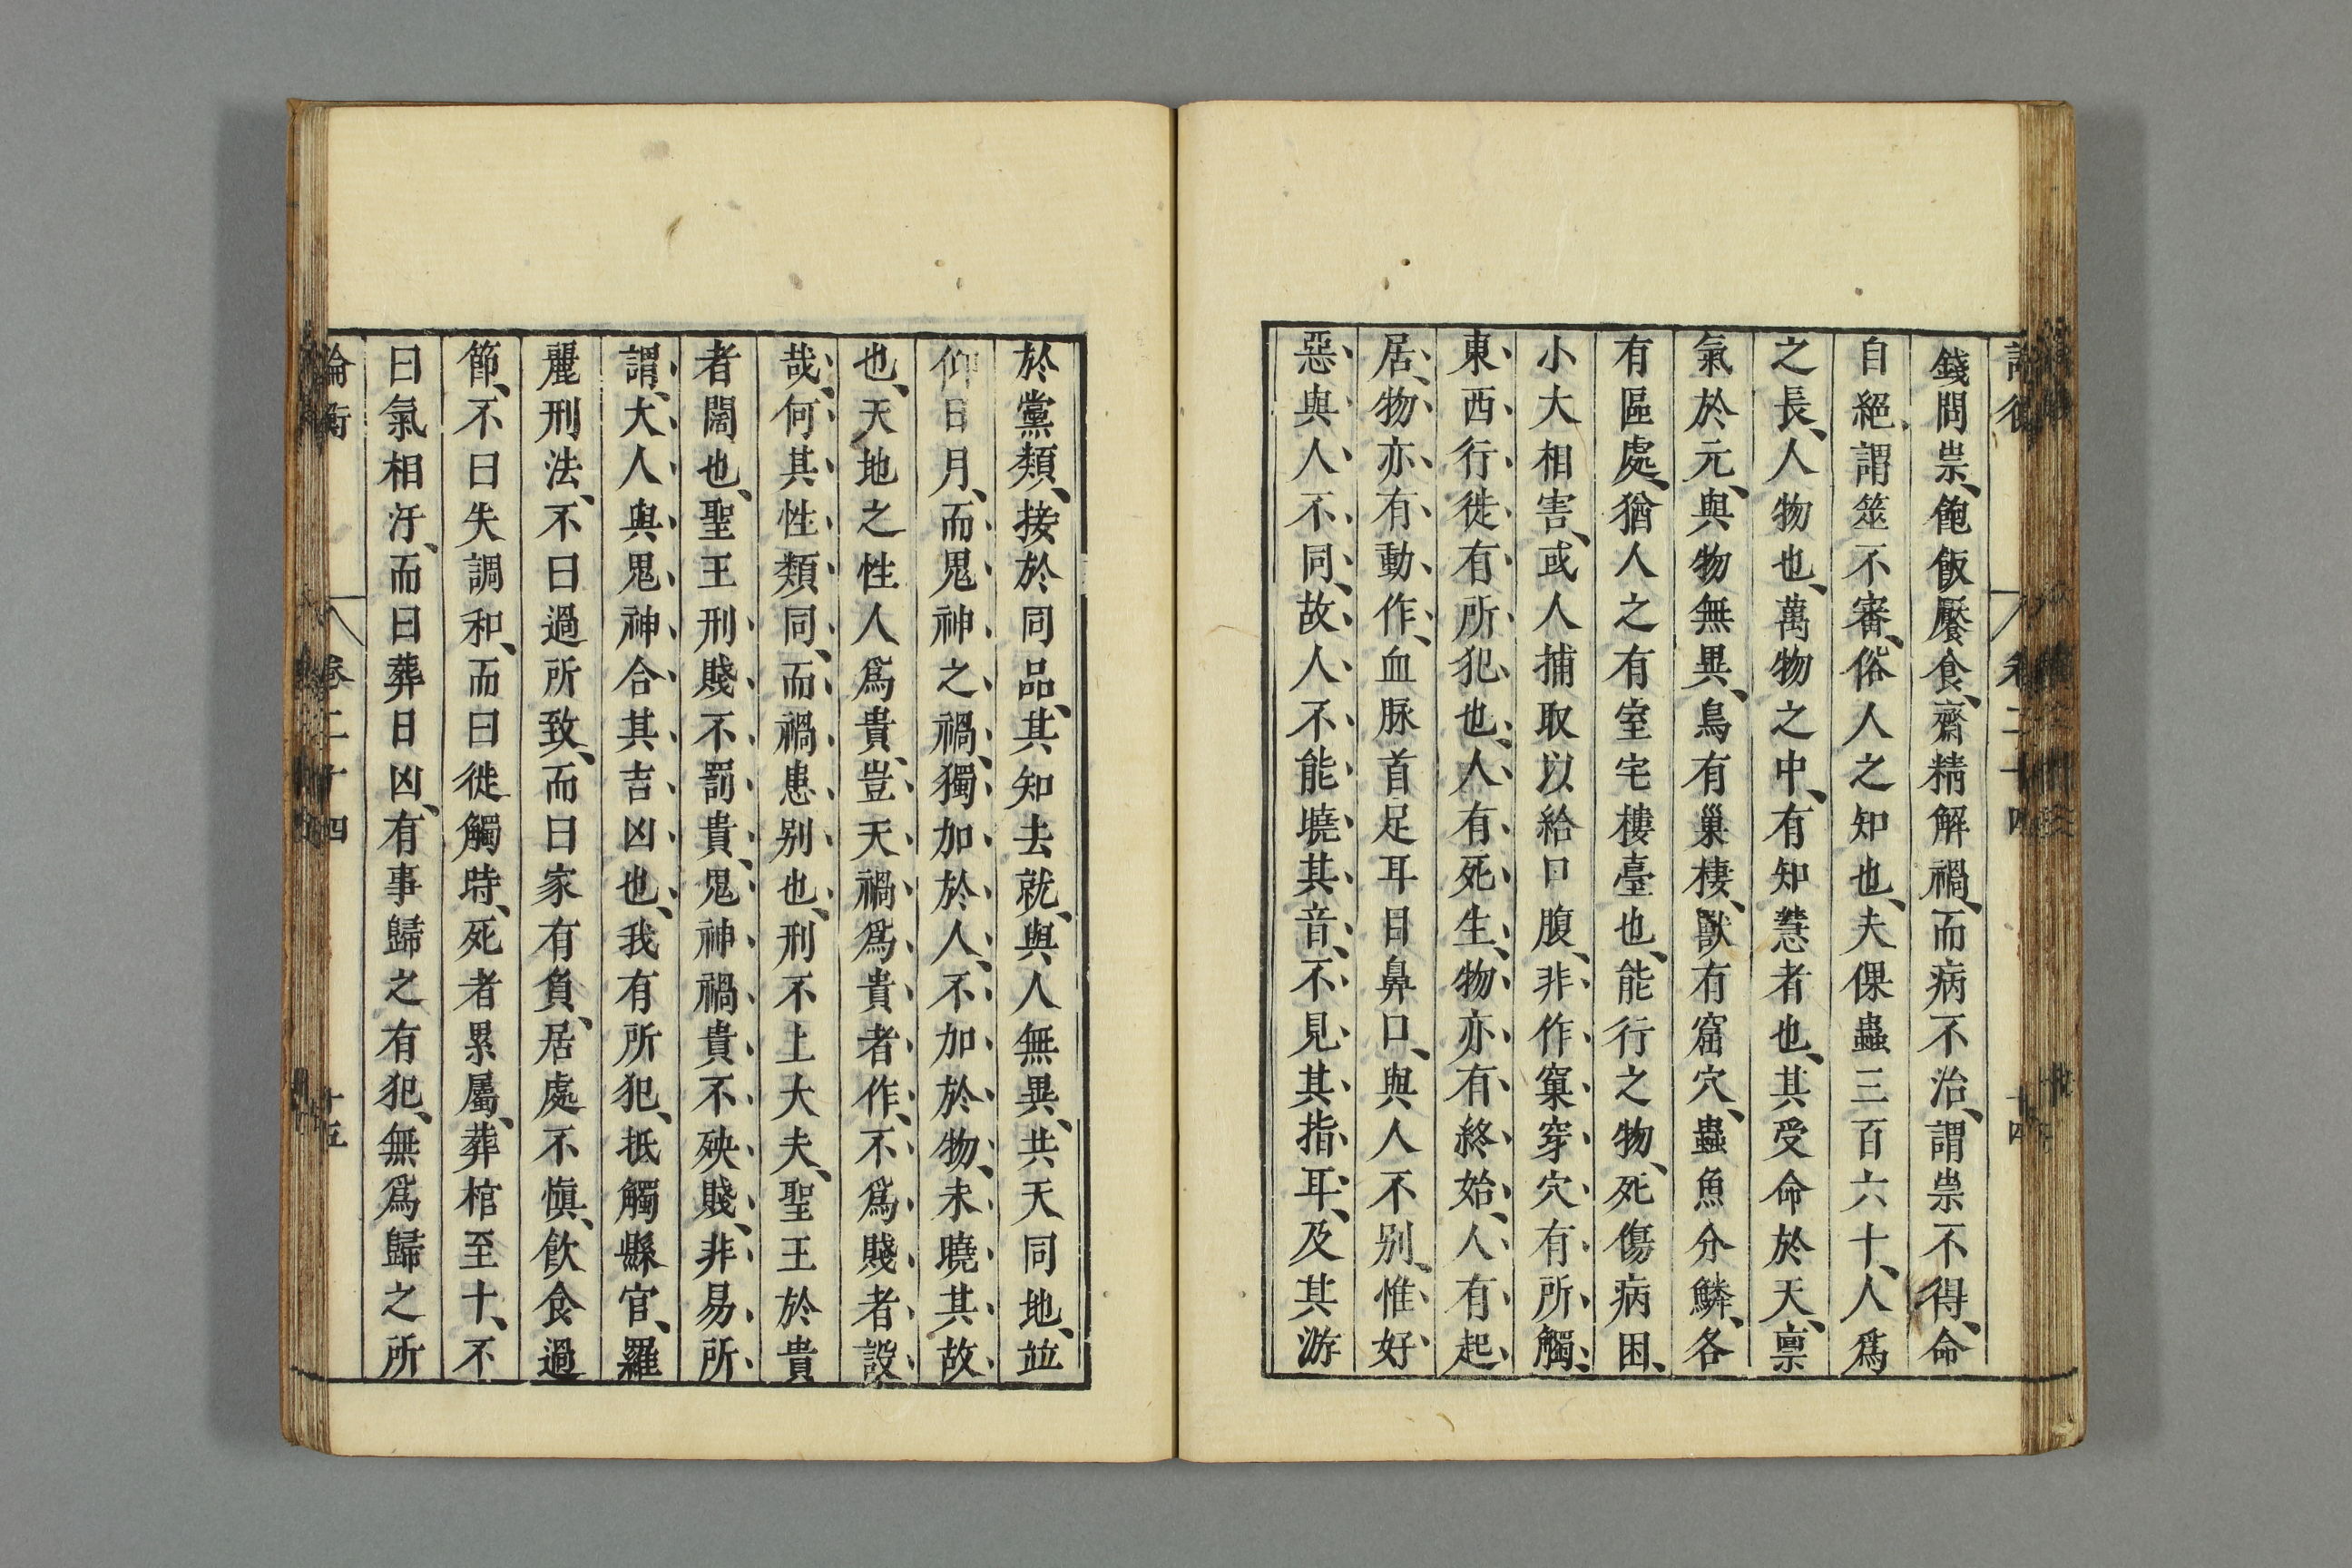 錢問祟、飽飯饜食、齋精解禍、而病不治、謂祟不得、命
自絕、謂筮不審、俗人之知也、夫倮蟲三百六十、人爲
之長、人物也、萬物之中、有知慧者也、其受命於天、禀
氣於元、與物無異、鳥有巢棲、獸有窟穴、蟲魚分鱗、各
有區處、猶人之有室宅樓臺也、能行之物、死傷病困、
小大相害、或人捕取以給口腹、非作窠穿穴有所觸、
東西行徙有所犯也、人有死生、物亦有終始、人有起
居、物亦有動作、血脉首足耳目鼻口、與人不别、惟好
惡與人不同、故人不能曉其音、不見其指耳、及其游
於黨類、接於同品、其知去就、與人無異、共天同地、竝
仰日月、而鬼神之禍、獨加於人、不加於物、未曉其故
也、天地之性人爲貴、豈天禍爲貴者作、不爲賤者設
哉、何其性類同、而禍患别也、刑不上大夫、聖王於貴
者闊也、聖王刑賤不罰貴、鬼神禍貴不殃賤、非易所
謂、大人與鬼神合其吉凶也、我有所犯、抵觸縣官、羅
麗刑法、不曰過所致、而曰家有負、居處不愼、飮食過
節、不曰失調和、而曰徙觸時、死者累屬、葬棺至十、不
曰氣相汙、而曰葬日凶、有事歸之有犯、無爲歸之所
論衡 卷二十四 十五